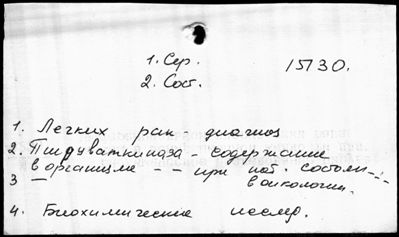 1. Сер.
15130.
2. Сост.
1. Легких рак диагноз
2. Пируваткиназа - содержание
в организме - - при пат. состоян- - -
3 — в онкологии.
4. Биохимические исслед.